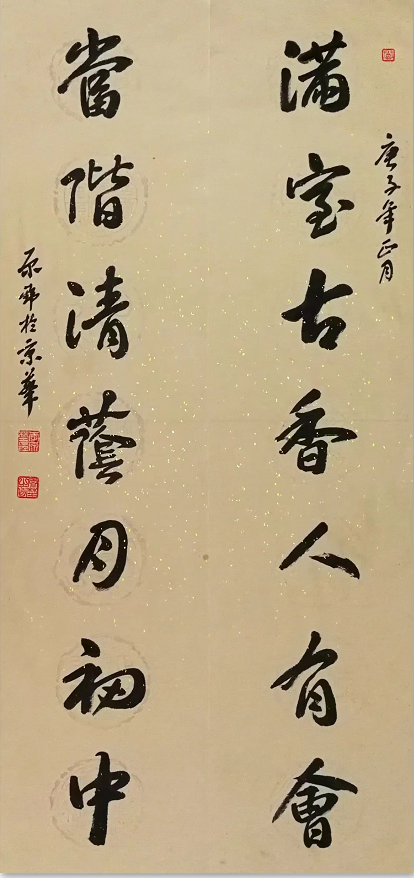 庚子年正月
滿室古香人有會
當階清蔭月初中
於京華